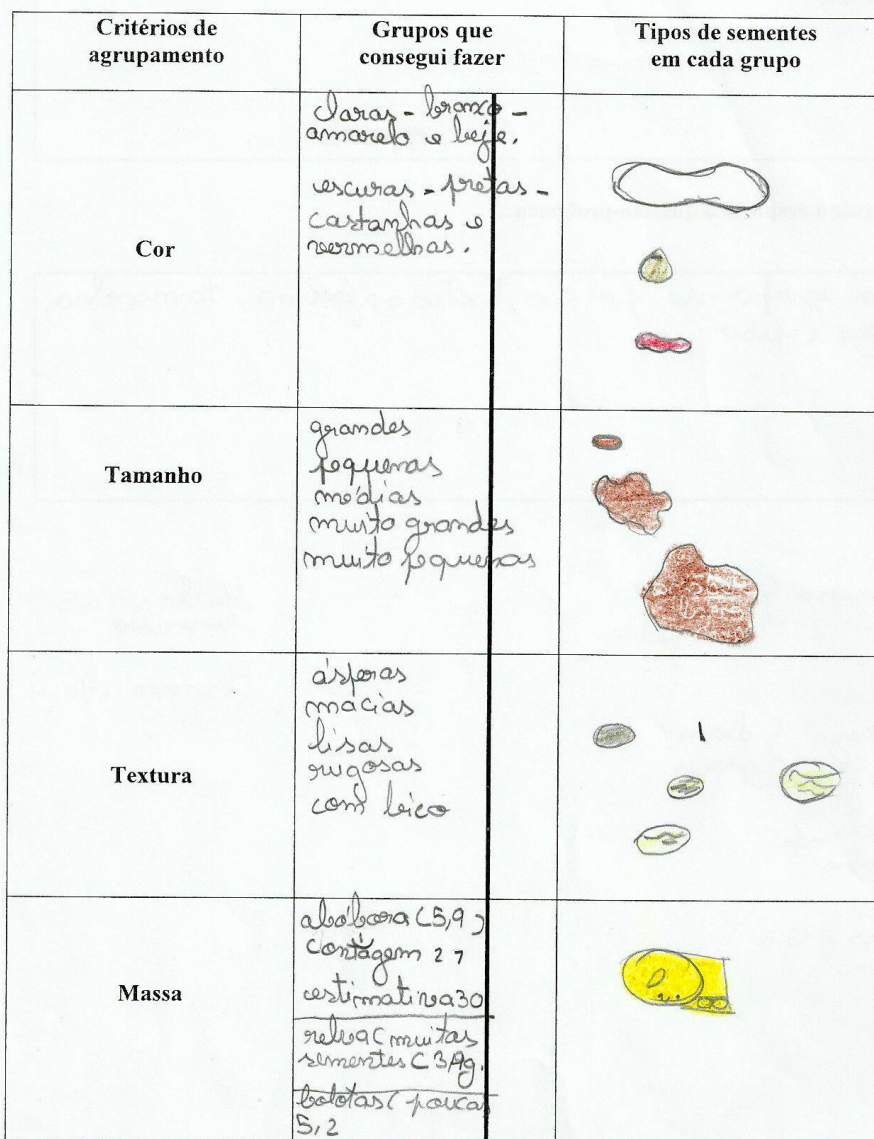 Critérios de
agrupamento
Grupos que
consegui fazer
Tipos de sementes
em cada grupo
Cor
claras - branco -
amarelo e beje.
escuras - pretas -
castanhas e
vermelhas.
Tamanho
grandes
pequenas
médias
muito grandes
muito pequenas
Textura
ásperas
macias
lisas
rugosas
com bico
Massa
abóbora (5,9)
contagem 27
estimativa 30
relva (muitas
sementes (
bolotas ( poucas
5,2